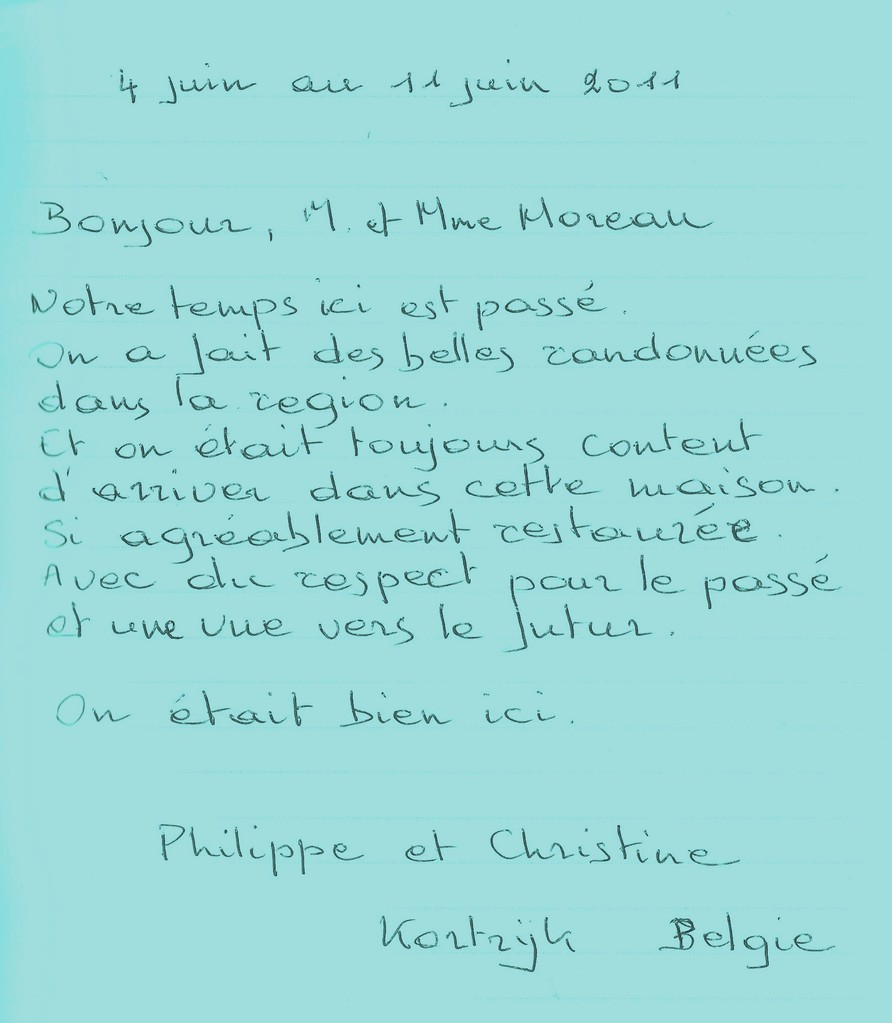 4 juin au 11 juin 2011
Bonjour, M. et Mme Moreau
Notre temps ici est passé.
On a fait des belles randonnées
dans la region.
Et on était toujours content
d'arriver dans cette maison.
Si agréablement restaurée.
Avec du respect pour le passé
et une vue vers le futur.
On était bien ici.
Philippe et Christine
Kortrijk Belgie